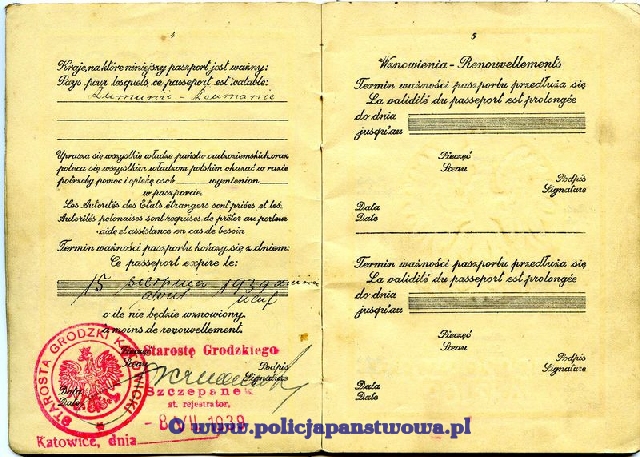 4
Kraje, na które niniejszy paszport jest ważny:
Pays pour lesquels ce passeport est valable:
Rumunia - Roumanie
Uprasza się wszystkie władze państw cudzoziemskich, oraz
poleca się wszystkim władzom polskim okazać w razie
potrzeby pomoc i opiekę osob wymienion
w paszporcie.
Les Autorités des Etats étrangers sont priées et les
Autorités polonaises sont requises de prêter au porteur
aide et assistance en cas de besoin
Termin ważności paszportu kończy się z dniem:
Ce passeport expire le:
15 sierpnia 1939
août
o ile nie będzie wznowiony.
à moins de renouvellement.
STAROSTA GRODZKI KATOWICKI
Starostę Grodzkiego
Podpis
Signature
Szczepanek
st. rejestrator,
Data
Date
Katowice, dnia
1939
5
Wznowienia - Renouvellements
Termin ważności paszportu przedłuża się
La validité du passeport est prolongée
do dnia
jusqu'au
Pieczęć
Sceau
Podpis
Signature
Data
Date
Termin ważności paszportu przedłuża się
La validité du passeport est prolongée
do dnia
jusqu'au
Pieczęć
Sceau
Podpis
Signature
Data
Date
© www.policjapanstwowa.pl